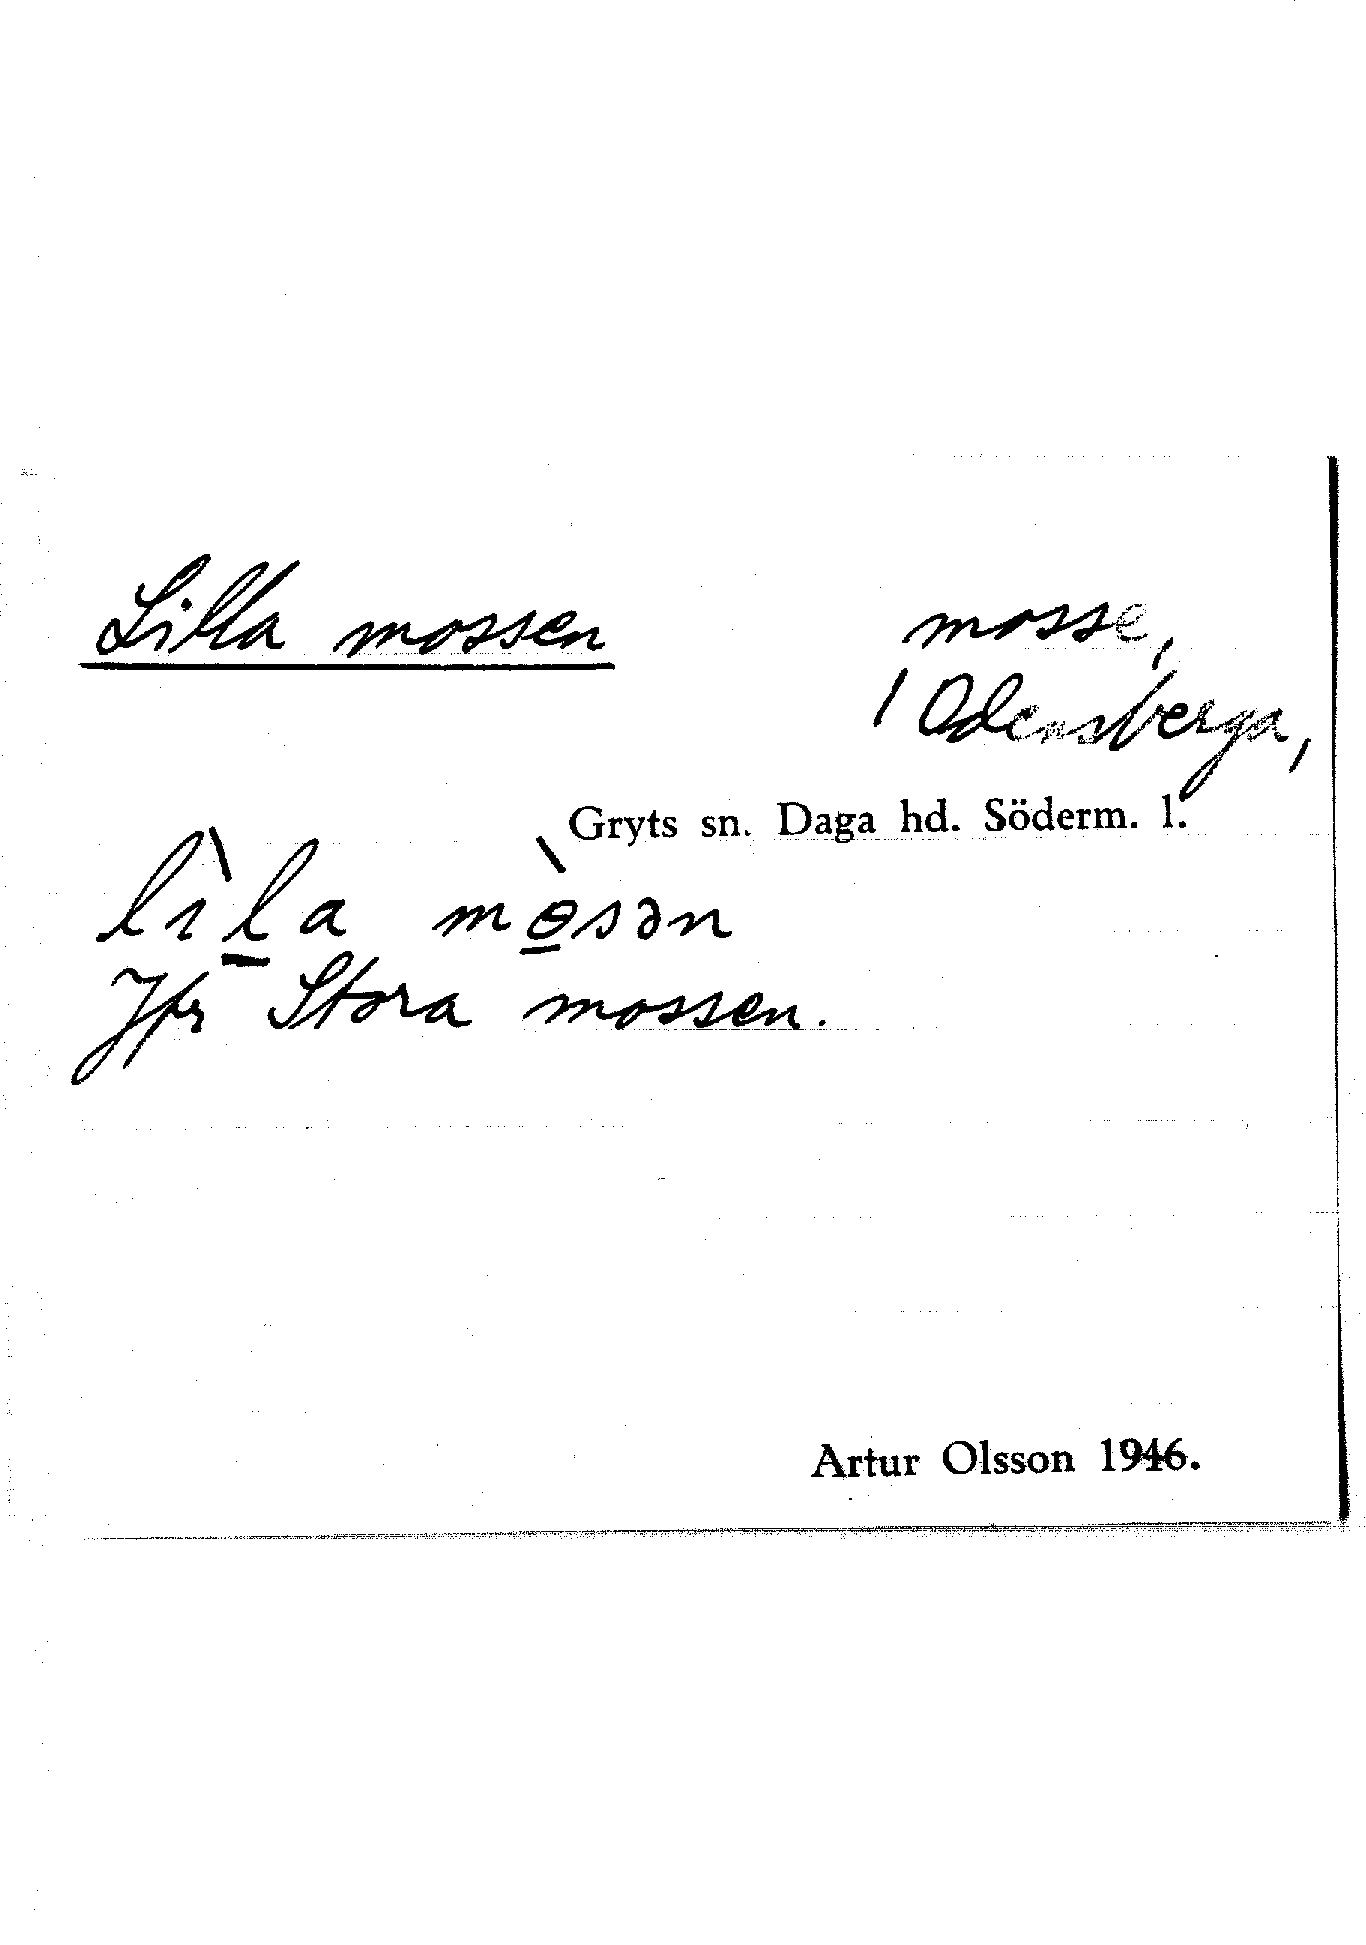 Lilla mossen mosse,
/ Odensberga,
Gryts sn. Daga hd. Söderm. l.
lìl̠a mɵ̠̀sən
Jfr Stora mossen.
Artur Olsson 1946.